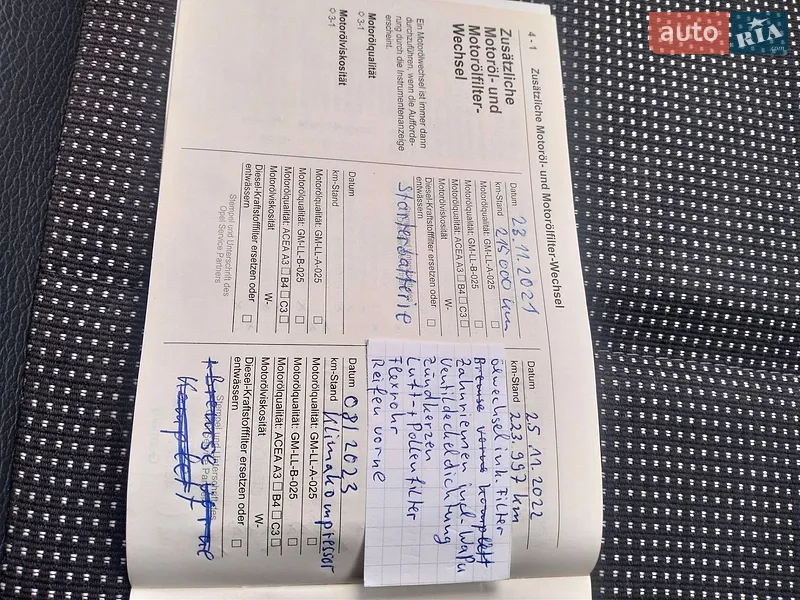 auto RIA.com
4-1 Zusätzliche Motoröl- und Motorölfilter-Wechsel
Zusätzliche
Motoröl- und
Motorölfilter-
Wechsel
Ein Motorölwechsel ist immer dann
durchzuführen, wenn die Aufforde-
rung durch die Instrumentenanzeige
erscheint.
Motorölqualität
3-1
Motorölviskosität
3-1
Datum 23.11.2021
km-Stand 215000 km
Motorölqualität: GM-LL-A-025
Motorölqualität: GM-LL-B-025
Motorölqualität: ACEA A3 B4 C3
Motorölviskosität W-
Diesel-Kraftstofffilter ersetzen oder
entwässern
Starterbatterie
Datum
km-Stand
Motorölqualität: GM-LL-A-025
Motorölqualität: GM-LL-B-025
Motorölqualität: ACEA A3 B4 C3
Motorölviskosität W-
Diesel-Kraftstofffilter ersetzen oder
entwässern
Stempel und Unterschrift des
Opel Service Partners
Datum 25.11.2022
km-Stand 223.997 km
Ölwechsel ink. Filter
Bremse vorne komplett
Zahnriemen inkl. WaPu
Ventildeckeldichtung
Zündkerzen
Luft- + Pollenfilter
Flexrohr
Reifen vorne
Datum 08/2023
km-Stand Klimakompressor
Motorölqualität: GM-LL-A-025
Motorölqualität: GM-LL-B-025
Motorölqualität: ACEA A3 B4 C3
Motorölviskosität W-
Diesel-Kraftstofffilter ersetzen oder
entwässern
Stempel und Unterschrift des
+ Bremse vorne
Komplett